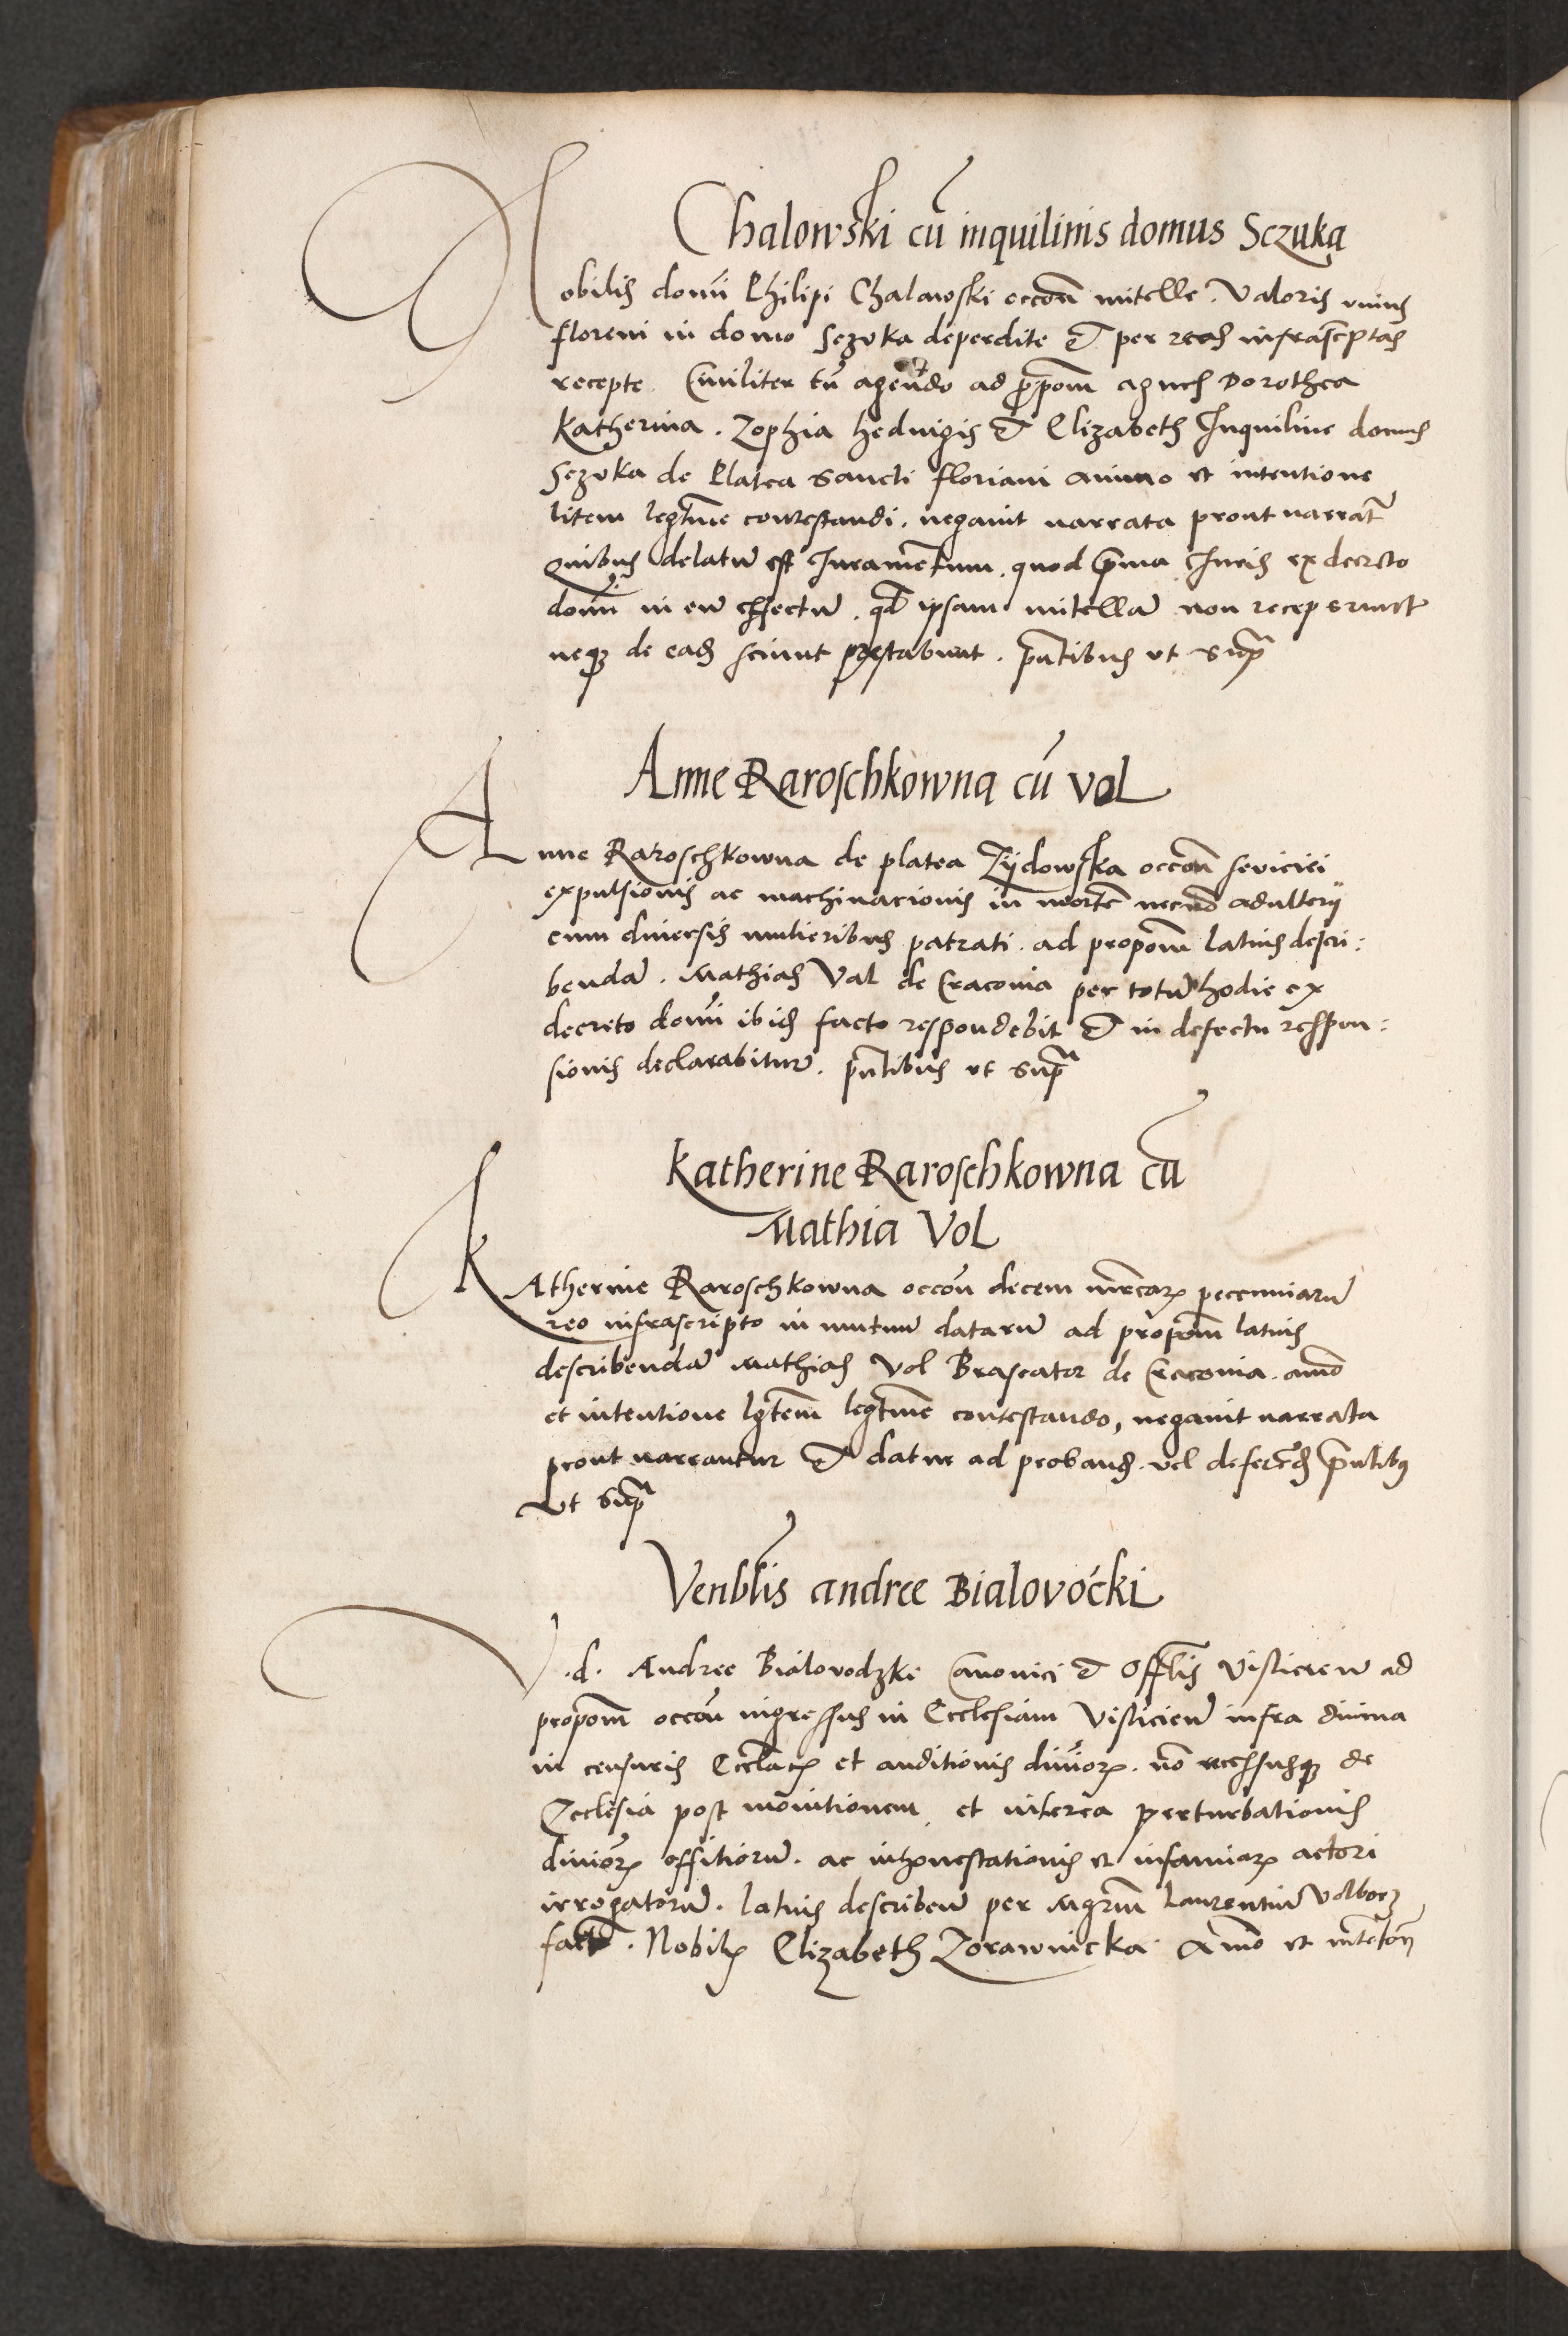 Chalowski cū inquilinis domus Sczuka
Nobilis domi Philipi Chalawski occoñ mitelle . Valoris unius
floreni in domo Sczuka deperdite & per reas infrascptas
recepte . Civiliter tm̄ agendo ad ppom̄ Agnes Dorothea
Katherina . Zophia Hedvigis & Elizabeth Inquiline domus
Sczuka de Platea Sancti floriani animo et intentione
litem legtime contestandi . negavit narrata prout narrat̄
Quibus delatū est Iuramentum . quod prima Iuris ex decreto
domi in eum effectū . qd ipsam mitellā non receperunt
neqꝫ de eadē sciunt prestabunt . pn̄tibus ut supᵃ
Anne Raroschkowna cū Vol
Anne Raroschkowna de platea Zÿdowska occoñ seviciei
expulsionis ac machinacionis in mortē necnō adulterij
cum diversis mulieribus patrati . ad propom̄ latius descri:
bendā . Mathias Val de Cracovia per totū hodie ex
decreto domi ibidē facto respondebit & in defectu respon:
sionis declarabitur . pn̄tibus ut supᵃ
Katherine Raroschkowna cū
Mathia Vol
Katherine Raroschkowna occoñ decem mrcaꝝ pecuniarū
reo infrascripto in mutuū datarū ad propom̄ latius
describendā Mathias Vol Braseator de Cracovia . aīo
et intentione lītem legtime contestando, negavit narrata
prout narrantur & datur ad proband̄ . vel deferend̄ pn̄tibꝰ
ut supᵃ
Venblis andree Bialovocki
V . d . Andree Bialovodzke Canonici & Offlis Visliciem̄ ad
propom̄ occoñ ingressus in Ecclesiam Visliciem̄ infra divina
in censuris Eccl̄aꝝ et auditionis divioꝝ . nō recessusqꝫ de
Ecclesia post monitionem . et interea perturbationis
divioꝝ offitiorū . ac inhonestationis et infamiaꝝ actori
irrogatorū . latius describen̄ per Mgrum Laurentiū Volborz
factū . Nobilꝭ Elizabeth Zorawnicka Animo et intētoñ